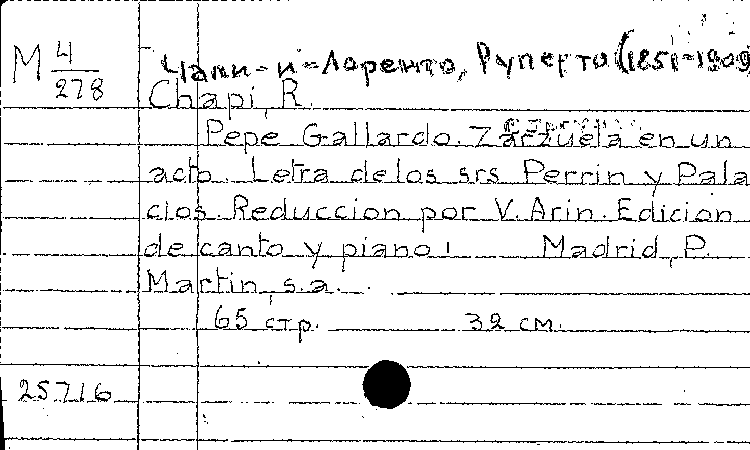 M 4/278
Чапи-и-Лоренто, Руперто (1851-1909
Chapi, R.
Pepe Gallardo. Zarzuela en un
acto. Letra de los srs Perrin y Pala
cios. Reduccion por V. Arin. Edicion
de canto y piano. Madrid, P.
Martin, s.a.
65 стр. 32 см.
25716